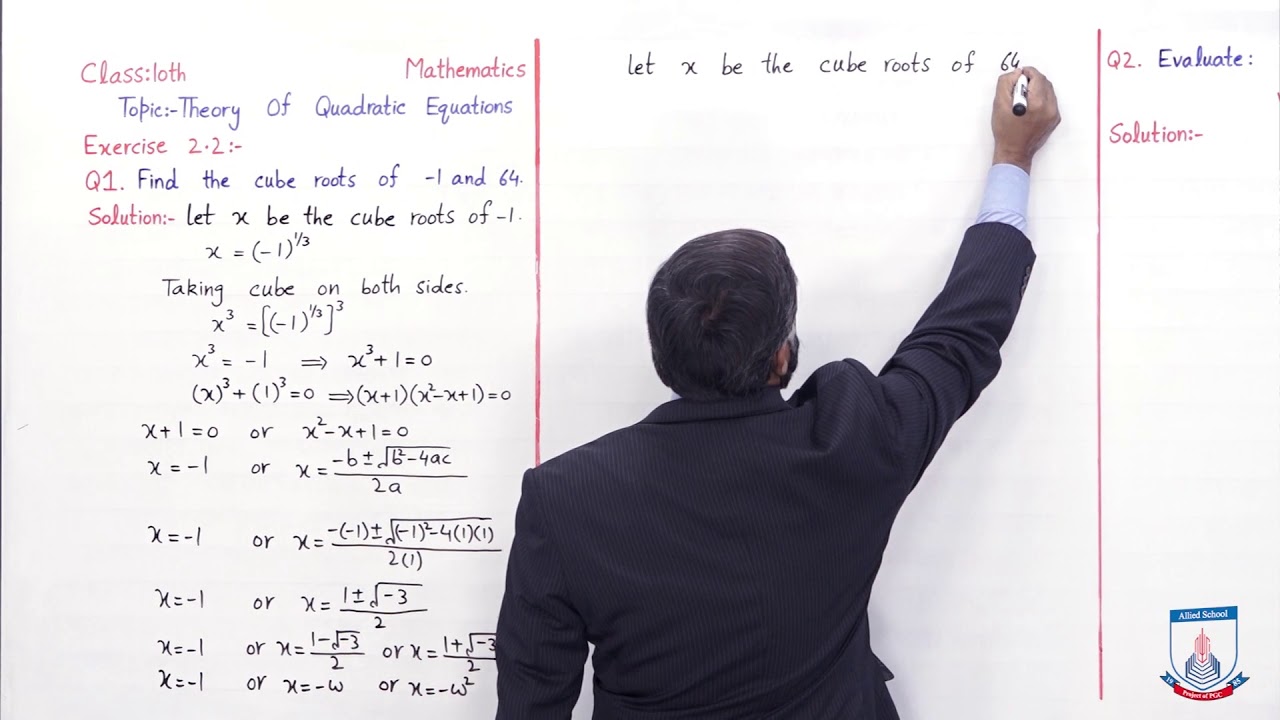 Class:10th Mathematics
Topic:-Theory Of Quadratic Equations
Exercise 2.2:-
Q1. Find the cube roots of -1 and 64.
Solution:- let x be the cube roots of -1.
x = (-1)^1/3
Taking cube on both sides.
x³ = [(-1)^1/3]³
x³ = -1 ⟹ x³+1=0
(x)³+(1)³=0 ⟹(x+1)(x²-x+1)=0
x+1=0 or x²-x+1=0
x=-1 or x=(-b±√(b²-4ac))/2a
x=-1 or x=(-(-1)±√((-1)²-4(1)(1)))/2(1)
x=-1 or x=(1±√-3)/2
x=-1 or x=(1-√-3)/2 or x=(1+√-3)/2
x=-1 or x=-ω or x=-ω²
let x be the cube roots of 64
Q2. Evaluate:
Solution:-
Allied School
19 85
Project of PGC